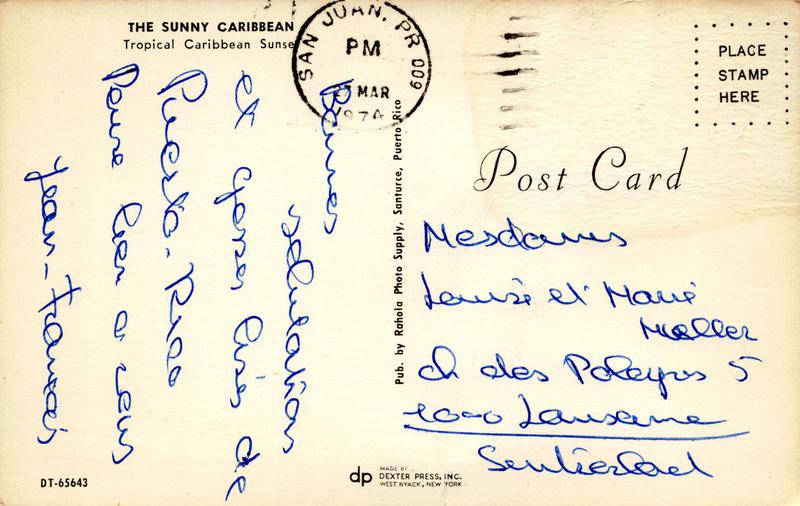 THE SUNNY CARIBBEAN
Tropical Caribbean Sunse
SAN JUAN, PR 009
PM
MAR
1974
PLACE
STAMP
HERE
Post Card
Bonnes
salutations
et gros bise de
Puerto-Rico
Pour
a
Jean-François
Pub. by Rahola Photo Supply, Santurce, Puerto Rico
Mesdames
Louise et Marie
Moeller
ch des Paleyres 5
1000 Lausanne
Switzerland
DT-65643
dp MADE BY
DEXTER PRESS, INC.
WEST NYACK, NEW YORK